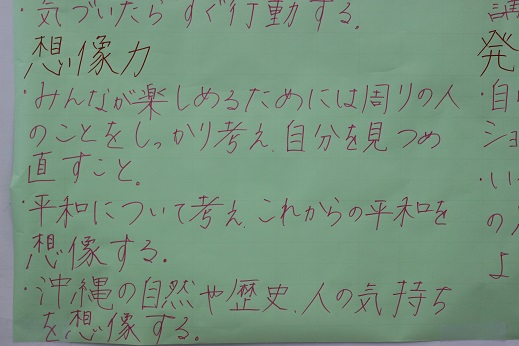 ・気づいたらすぐ行動する。
想像力
・みんなが楽しめるためには周りの人
のことをしっかり考え、自分を見つめ
直すこと。
・平和について考え、これからの平和を
想像する。
・沖縄の自然や歴史、人の気持ち
を想像する。
発
・自
ショ
・い
の
よ